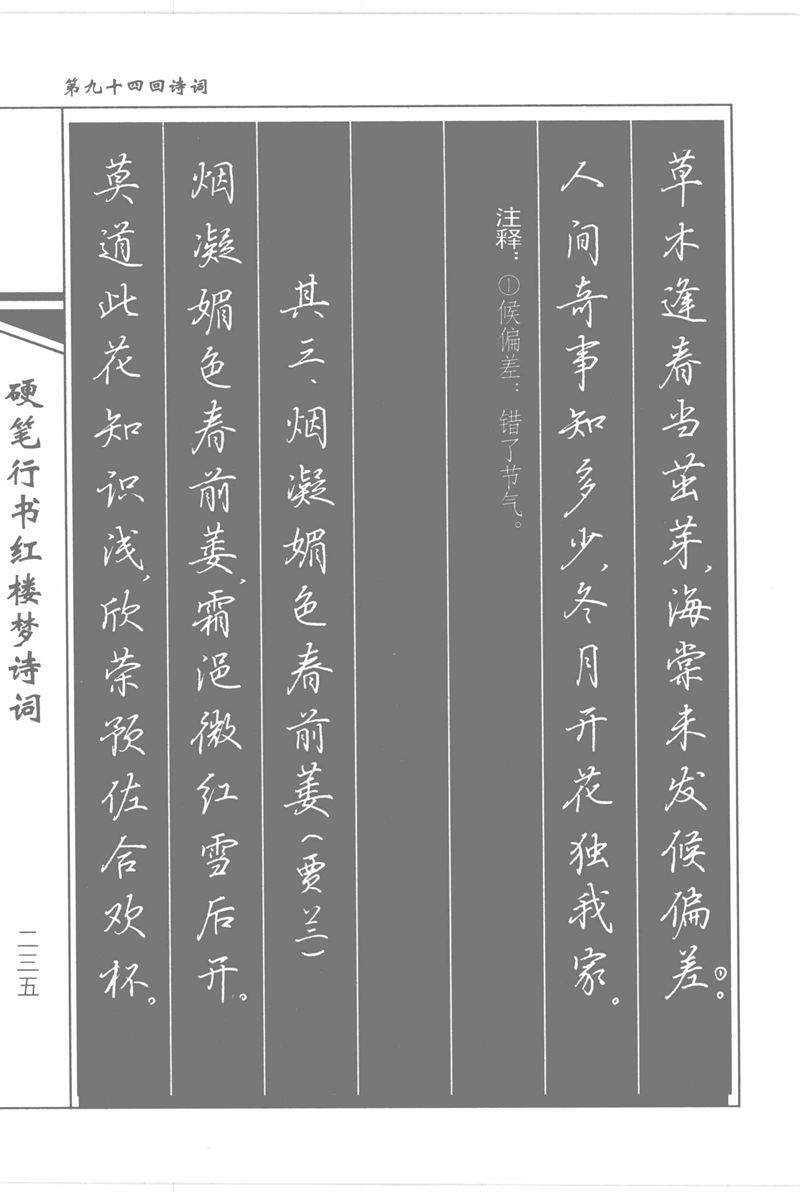 第九十四回诗词
草木逢春当茁芽，海棠未发候偏差①。
人间奇事知多少，冬月开花独我家。
注释：①候偏差：错了节气。
其三、烟凝媚色春前萎（贾兰）
烟凝媚色春前萎，霜浥微红雪后开。
莫道此花知识浅，欣荣预佐合欢杯。
硬笔行书红楼梦诗词
二三五